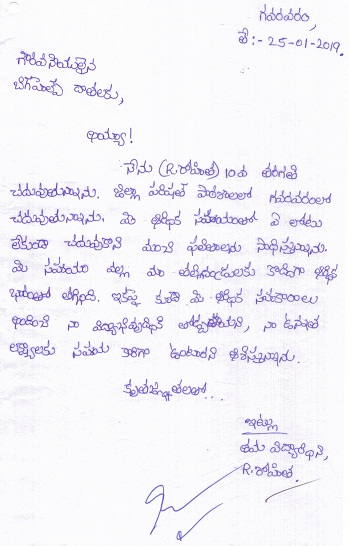 గవరవరం,
తే:- 25-01-2019.
గౌరవనీయులైన
బిగ్‌హెల్ప్ దాతలకు,
అయ్యా!
నేను (R.రోహిత) 10వ తరగతి
చదువుతున్నాను. జిల్లా పరిషత్ పాఠశాలలో గవరవరంలో
చదువుతున్నాను. మీ ఆర్థిక సహాయంతో ఏ లోటు
లేకుండా చదువుకొని మంచి ఫలితాలను సాధిస్తున్నాను.
మీ సహాయం వల్ల మా తల్లిదండ్రులకు కొంచెం ఆర్థిక
భారంతో తగ్గింది. ఇకపై కూడా మీ ఆర్థిక సహకారాలు
అందించి నా విద్యాభివృద్ధికి తోడ్పడాలని, నా ఉన్నత
లక్ష్యాలకు సహాయ కారిగా ఉంటారని ఆశిస్తున్నాను.
కృతజ్ఞతలతో...
ఇట్లు
తమ విద్యార్థిని,
R.రోహిత.